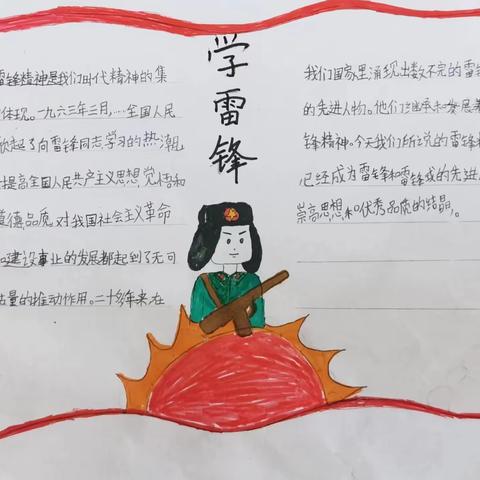 学雷锋
雷锋精神是我们时代精神的集
体现。一九六三年三月,....全国人民
掀起了向雷锋同志学习的热潮
提高全国人民共产主义思想觉悟和
道德品质。对我国社会主义革命
和建设事业的发展都起到了无可
估量的推动作用。二十多年来,在
我们国家里涌现出数不完的雷
的先进人物。他们继承和发展
锋精神。今天我们所说的雷锋
已经成为雷锋和雷锋式的先进
崇高思想和优秀品质的结晶。